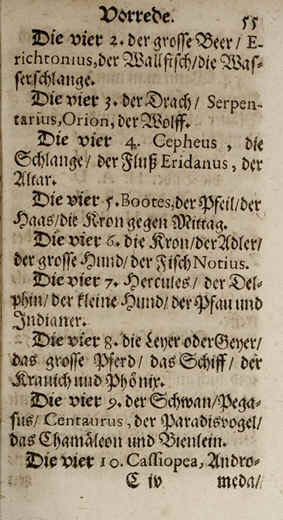 Vorrede. 55
Die vier 2. der grosse Beer/ E-
richtonius, der Wallfisch/die Was-
serschlange.
Die vier 3. der Drach/ Serpen-
tarius, Orion, der Wolff.
Die vier 4. Cepheus, die
Schlange/ der Fluß Eridanus, der
Altar.
Die vier 5. Bootes, der Pfeil/der
Haas/die Kron gegen Mittag.
Die vier 6. die Kron/der Adler/
der grosse Hund/ der Fisch Notius.
Die vier 7. Hercules/ der Del-
phin/ der kleine Hund/ der Pfau und
Indianer.
Die vier 8. die Leyer oder Geyer/
das grosse Pferd/ das Schiff/ der
Kranich und Phönix.
Die vier 9. der Schwan/Pega-
sus/ Centaurus, der Paradisvogel/
das Chamäleon und Bienlein.
Die vier 10. Cassiopea, Andro-
C iv meda/